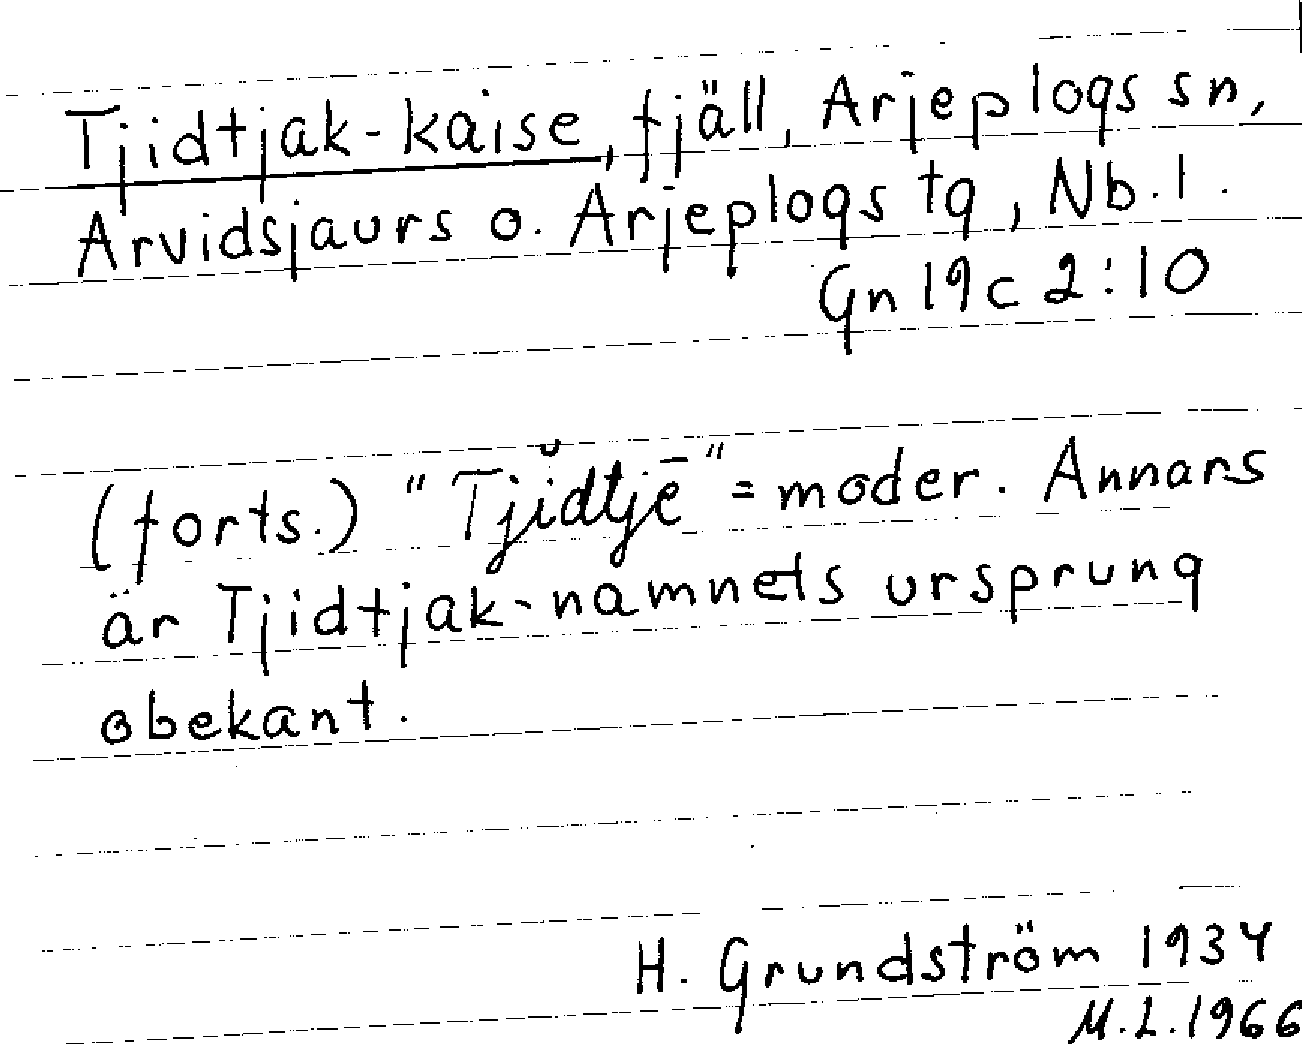 Tjidtjak-kaise, fjäll, Arjeplogs sn,
Arvidsjaurs o. Arjeplogs tg, Nb. l.
Gn 19c 2:10
(forts.) "Tjĭdtjē" = moder. Annars
är Tjidtjak-namnets ursprung
obekant.
H. Grundström 1934
M.L. 1966